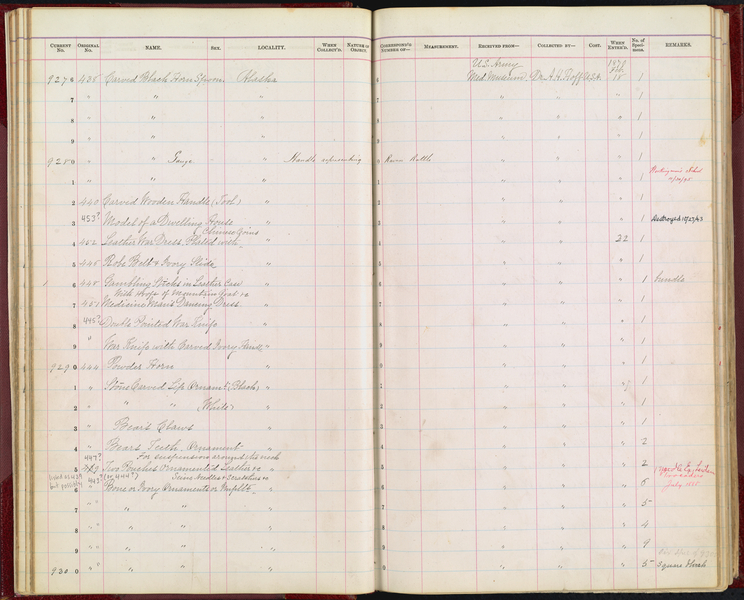 CURRENT No. ORIGINAL No. NAME. SEX. LOCALITY. WHEN COLLECT'D. NATURE OF OBJECT. CORRESPOND'G NUMBER OF— MEASUREMENT. RECEIVED FROM— COLLECTED BY— COST. WHEN ENTER'D. No. of Specimens. REMARKS.
U.S. Army 1870
9278 435 Carved Black Horn Spoon Alaska Med. Museum Dr. A. H. Hoff U.S.A. 18 1
7 " " " " " " 1
8 " " " " " " 1
9 " " " " " " 1
9280 " " Large " Handle representing a Raven Rattle " " " 1
1 " " " " " " 1
2 440 Carved Wooden Handle (Tool) " " " " 1
3 453? Model of a Dwelling House " " " " 1 Destroyed 10/27/43
Chinese Coins
4 452 Leather War Dress, Plated with " " " " 32
5 445 Robe Belt & Ivory Slide " " " " 1
6 448 Gambling Sticks in Leather Case " " " " 1 bundle
With Hoofs of Mountain Goat &c
7 451 Medicine Man's Dancing Dress " " " " 1
8 445? Double Pointed War Knife " " " " 1
9 " War Knife with Carved Ivory Handle " " " " 1
9290 444 Powder Horn " " " " 1
1 " Stone Carved Lip Ornament (Black) " " " " 1
2 " " " (White) " " " " 1
3 Bear's Claws " " " " 1
4 Bears Teeth Ornament " " " " 2
447? For suspension around the neck
5 Two Pouches Ornamented Leather &c " " " " 2
443? (or 444?) Some Needles & Scratches &c
6 Bone or Ivory Ornaments or " " " " 6 July 1885
7 " " " " " " " 5
8 " " " " " " " 4
9 " " " " " " " 9
9300 " " " " " " " 5 Square